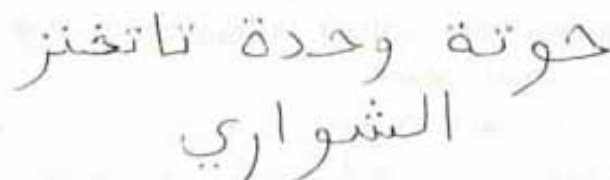 حوتة وحدة تاتخنز
الشواري